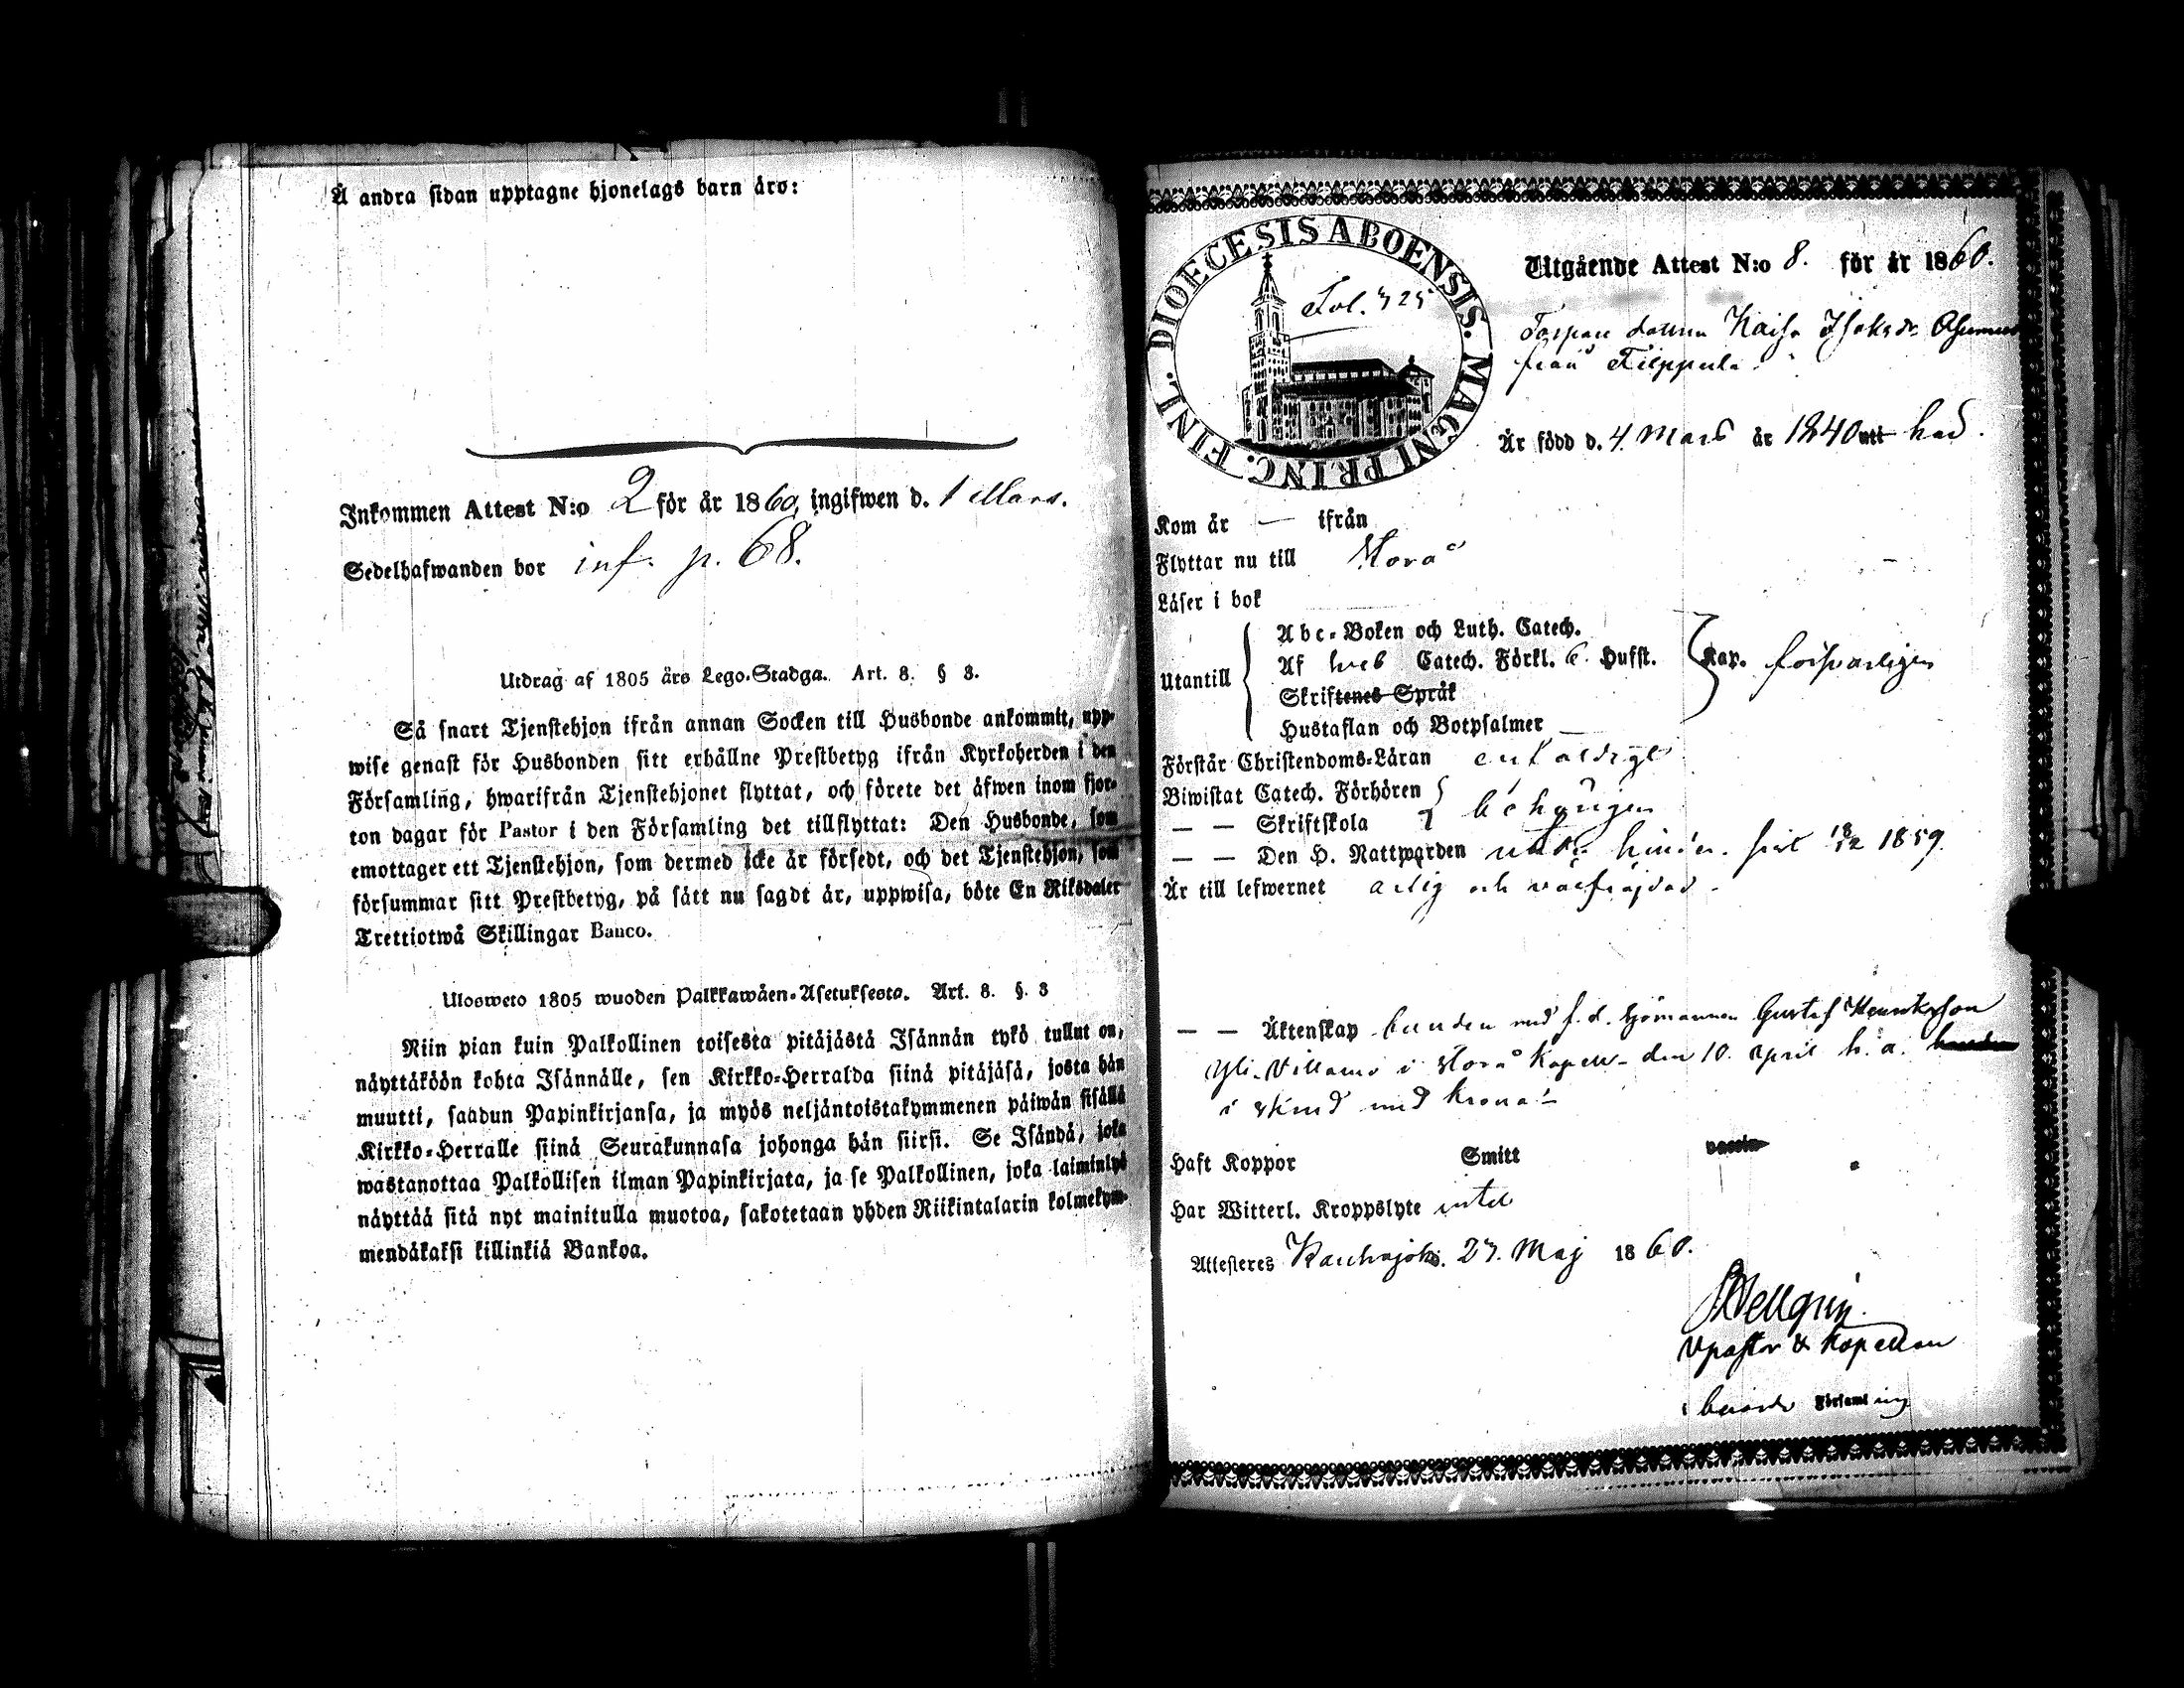 Å andra sidan upptagne hjonelags barn äro:
Inkommen Attest N:o 2 för år 1860, ingifwen d. 1 Mars.
Sedelhafwanden bor inf. p. 68.
Utdrag af 1805 års Lego-Stadga. Art. 8. § 3.
Så snart Tjenstehjon ifrån annan Socken till Husbonde ankommit, upp-
wise genast för Husbonden sitt erhållne Prestbetyg ifrån Kyrkoherden i den
Församling, hwarifrån Tjenstehjonet flyttat, och förete det äfwen inom fjor-
ton dagar för Pastor i den Församling det tillflyttat: Den Husbonde, som
emottager ett Tjenstehjon, som dermed icke är försedt, och det Tjenstehjon, som
försummar sitt Prestbetyg, på sätt nu sagdt är, uppwisa, böte En Riksdaler
Trettiotwå Skillingar Banco.
Ulosweto 1805 wuoden Palkkawäen-Asetuksesta. Art. 8. §. 3
Niin pian kuin Palkollinen toisesta pitäjästä Isännän tykö tullut on,
näyttäköön kohta Isännälle, sen Kirkko-Herralda siinä pitäjäsä, josta hän
muutti, saadun Papinkirjansa, ja myös neljäntoistakymmenen päiwän sisällä
Kirkko-Herralle siinä Seurakunnasa johonga hän siirsi. Se Isändä, joka
wastanottaa Palkollisen ilman Papinkirjata, ja se Palkollinen, joka laiminlyö
näyttää sitä nyt mainitulla muotoa, sakotetaan yhden Riikintalarin kolmekym-
mendäkaksi killinkiä Bankoa.
DIOECESIS ABOENSIS. MAGNI PRINC. FINL.
Fol. 325
Utgående Attest N:o 8. för år 1860.
Torpare dottren Kaisa Isaksdr
från Filppula
Är född d. 4 Mars år 1840 uti här.
Kom år — ifrån
Flyttar nu till Storå
Läser i bok
Utantill
Abc-Boken och Luth. Catech.
Af Catech. Förkl. 6. Husst. Kap. försvarligen
Skriftenes Språk
Hustaflan och Botpsalmer
Förstår Christendoms-Läran enfaldigt
Biwistat Catech. Förhören
— — Skriftskola behörigen
— — Den H. Nattwarden utan hinder. sist 18/12 1859.
Är till lefwernet ärlig och välfräjdad.
— — Äktenskap bunden med f.d. Gustaf Henriksson
Yli-Villamo i Storå Kapell den 10. april h. a.
i
Haft Koppor Smitt vaccin
Har Witterl. Kroppslyte intet
Attesteres Kauhajoki. 27. Maj 1860.
Vpastor & Kapellan
i berörde Församling